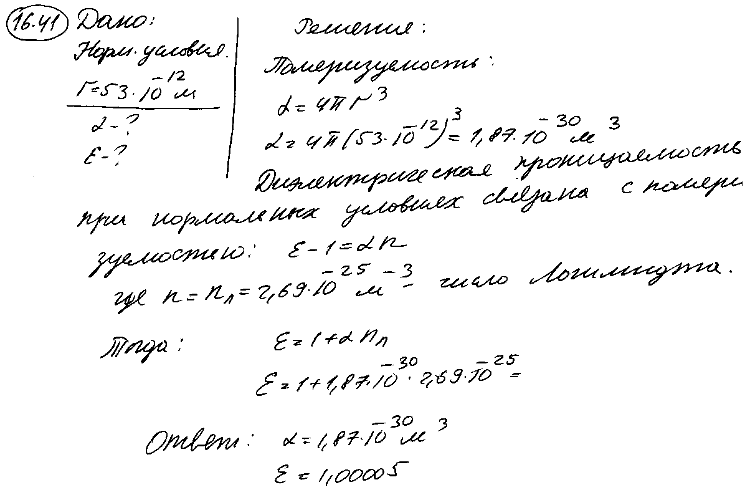 16.41 Дано:
Норм. условия.
r=53·10⁻¹² м
α-?
ε-?
Решения:
Поляризуемость:
α=4πr³
α=4π(53·10⁻¹²)³=1,87·10⁻³⁰ м³
Диэлектрическая проницаемость
при нормальных условиях связана с поляри
зуемостью: ε-1=αn
где n=nл=2,69·10⁻²⁵ м⁻³ - число Лошмидта.
Тогда: ε=1+αnл
ε=1+1,87·10⁻³⁰·2,69·10⁻²⁵=
Ответ: α=1,87·10⁻³⁰ м³
ε=1,00005